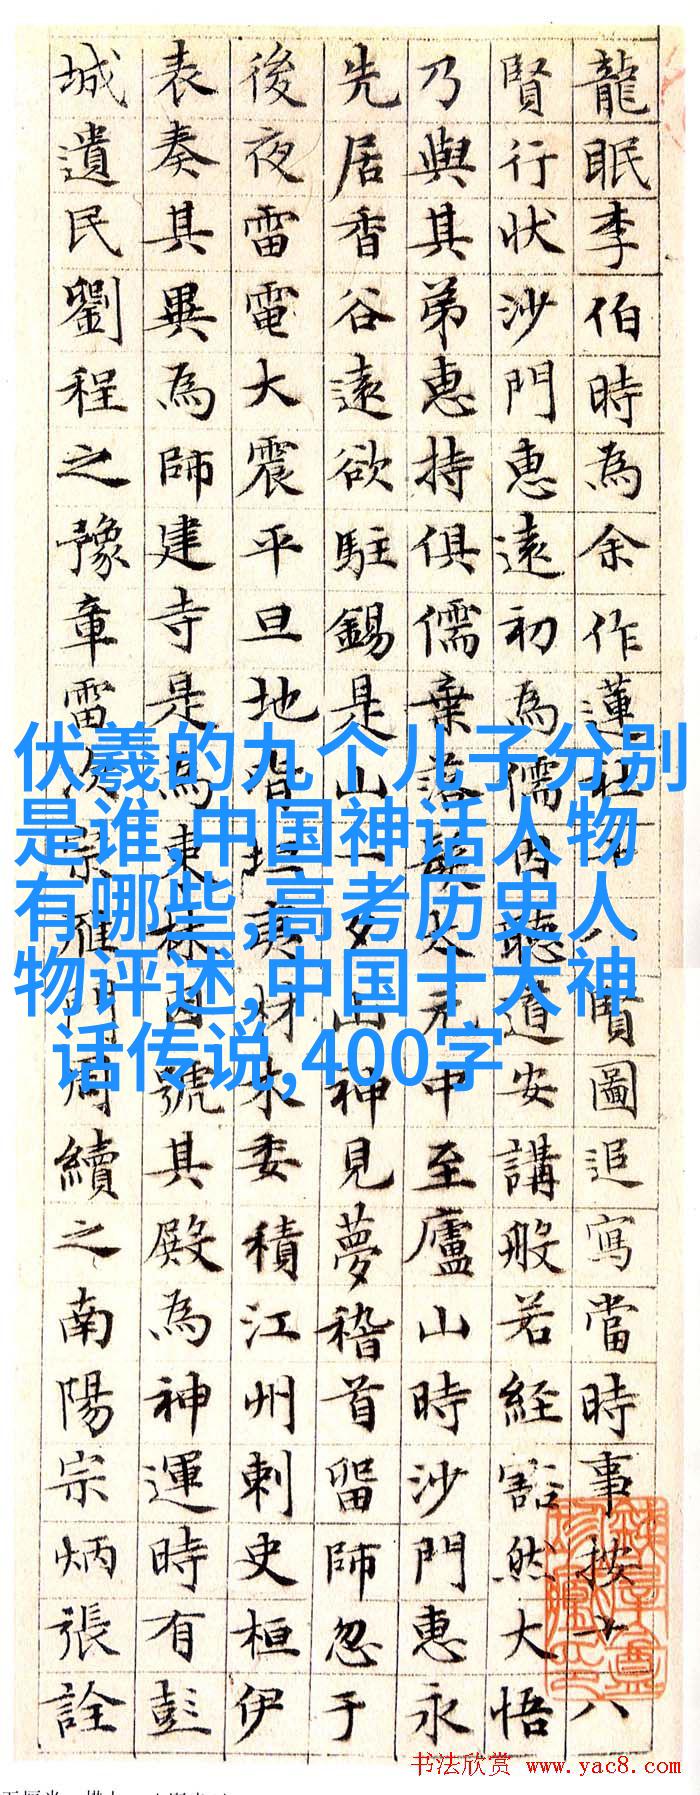 龍眠李伯時為余作蓮社十八賢圖追寫當時事按十八
賢行狀沙門惠遠初為儒因聽道安講般若經豁然大悟
乃與其弟惠持俱儒棄落髮太元中至廬山時沙門惠永
先居香谷遠欲駐錫是山一夕山神見夢稽首留師忽于
後夜雷電大震平旦地皆坦夷材木委積江州刺史桓伊
表奏其異為師建寺是為東林因號其殿為神運時有彭
城遺民劉程之豫章雷次宗雁門周續之南陽宗炳張詮
伏羲的九个儿子分别
是谁,中国神话人物
有哪些,高考历史人
物评述,中国十大神
话传说,400字
书法欣赏 www.yac8.com